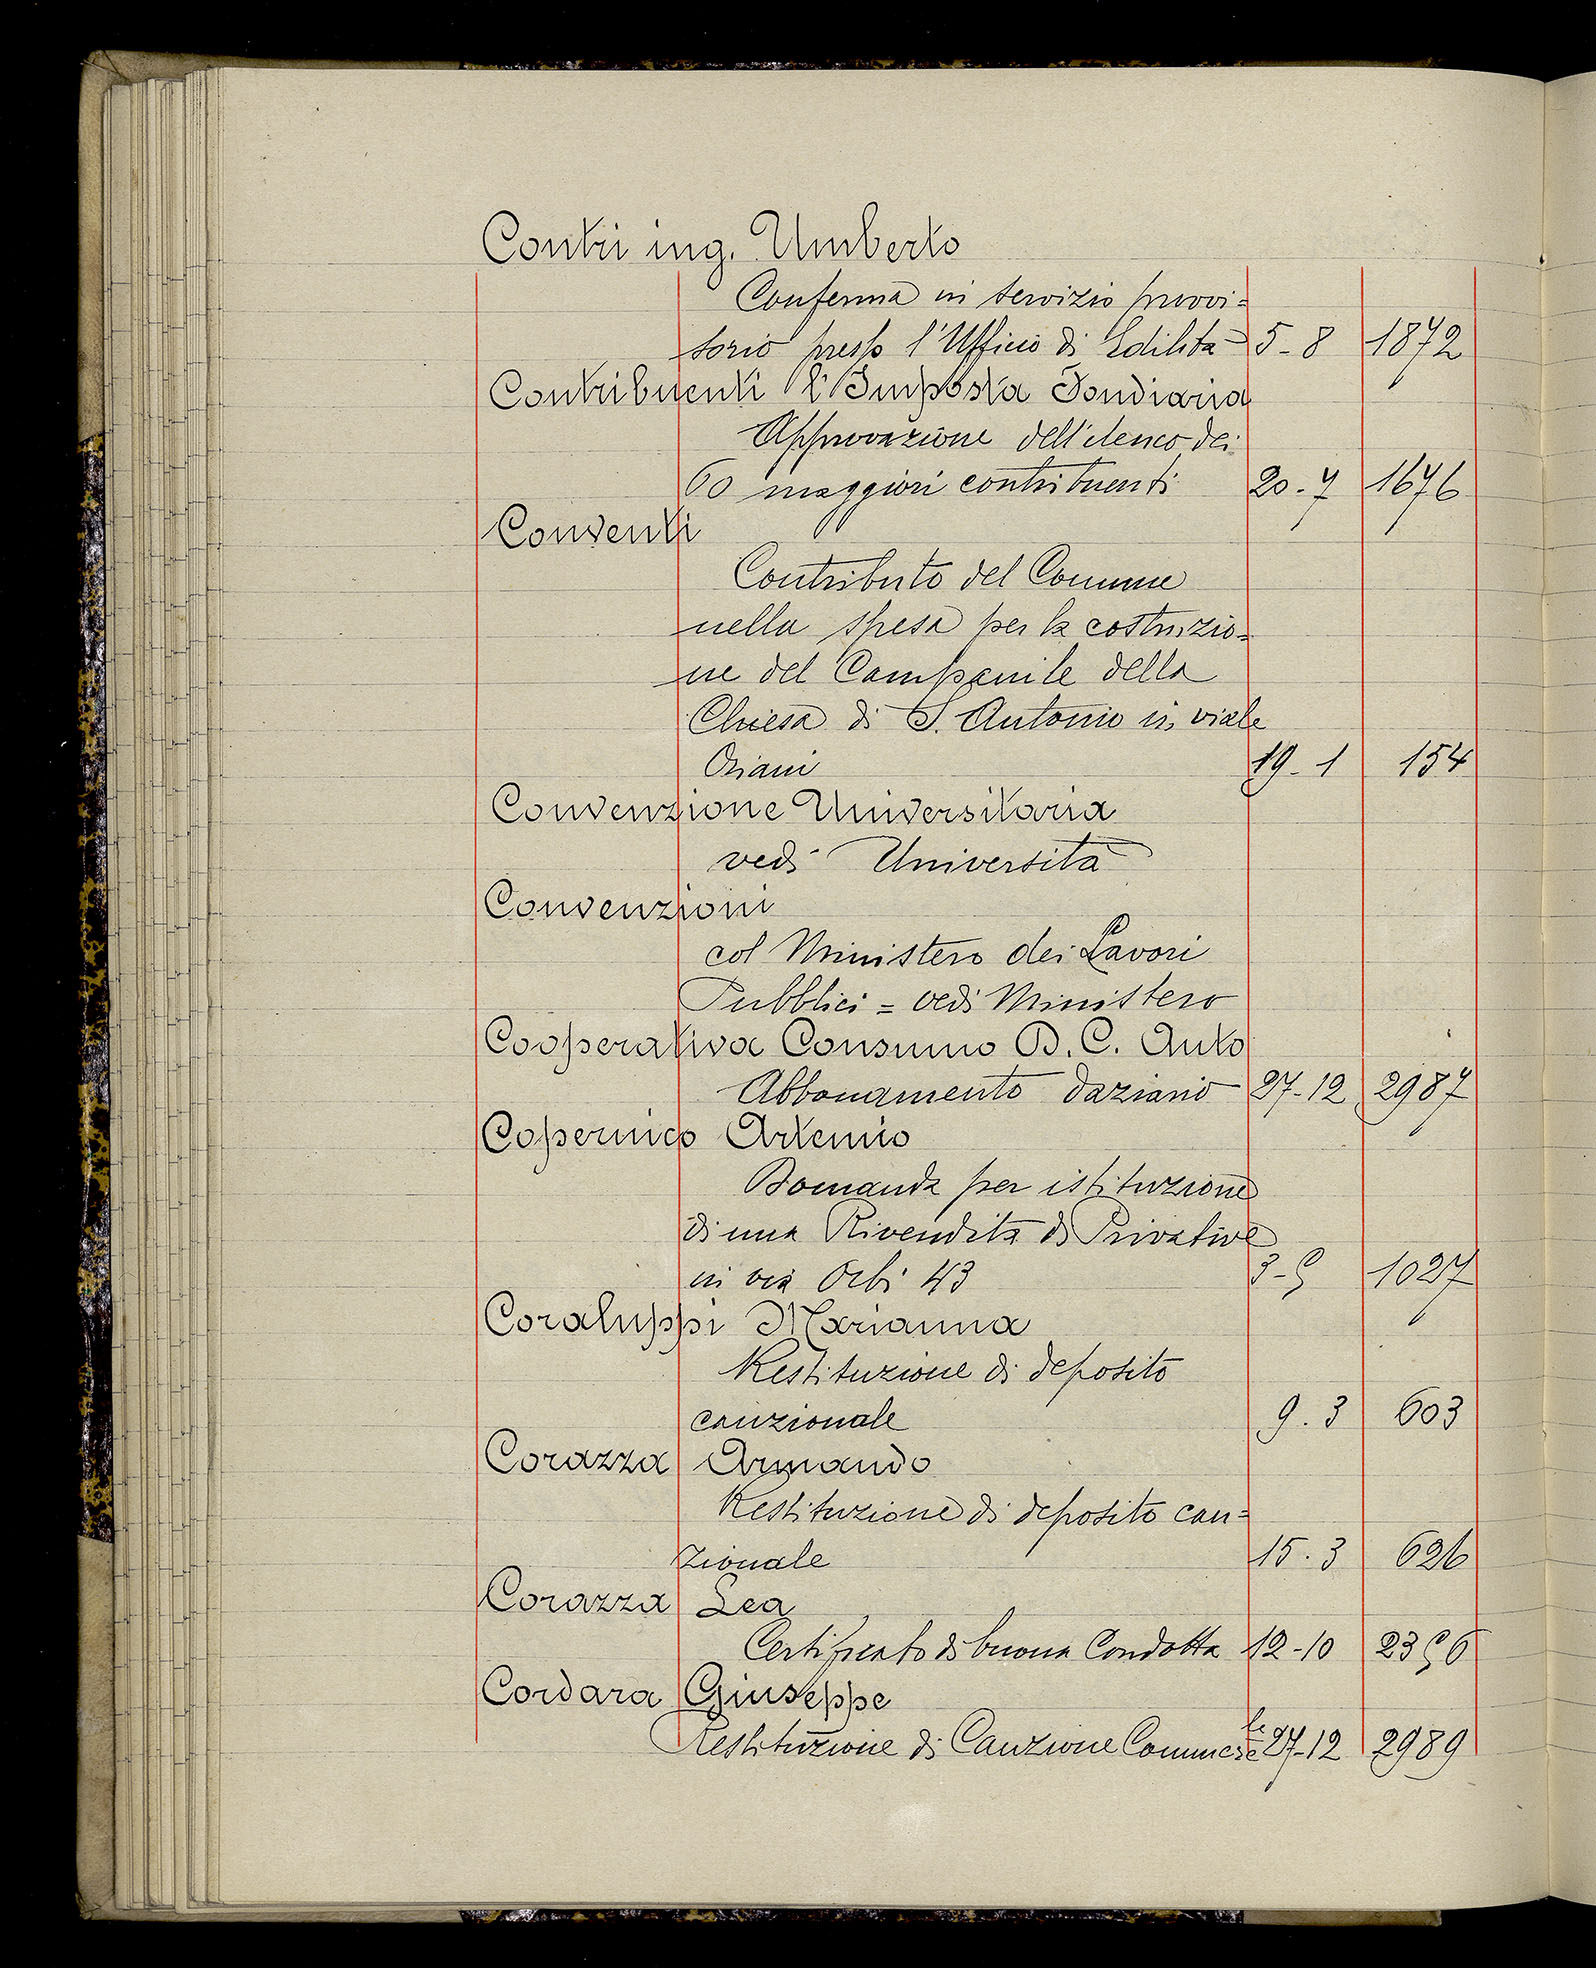 Contri ing. Umberto
Conferma in servizio provvi=
sorio presso l'Ufficio di Edilità 5-8 1872
Contribuenti l'Imposta Fondiaria
Approvazione dell'elenco dei
60 maggiori contribuenti 20-7 1676
Conventi
Contributo del Comune
nella spesa per la costruzio=
ne del Campanile della
Chiesa di S. Antonio in viale
Oriani 19-1 154
Convenzione Universitaria
vedi Università
Convenzioni
col Ministero dei Lavori
Pubblici = vedi Ministero
Cooperativa Consumo B. C. Auto
Abbonamento daziario 27-12 2987
Copernico Artemio
Domanda per istituzione
di una Rivendita di Privative
in via Orbi 43 3-5 1027
Coraluppi Marianna
Restituzione di deposito
cauzionale 9.3 603
Corazza Armando
Restituzione di deposito cau=
zionale 15.3 626
Corazza Lea
Certificato di buona Condotta 12-10 2356
Cordara Giuseppe
Restituzione di Cauzione Commerc.le 27-12 2989